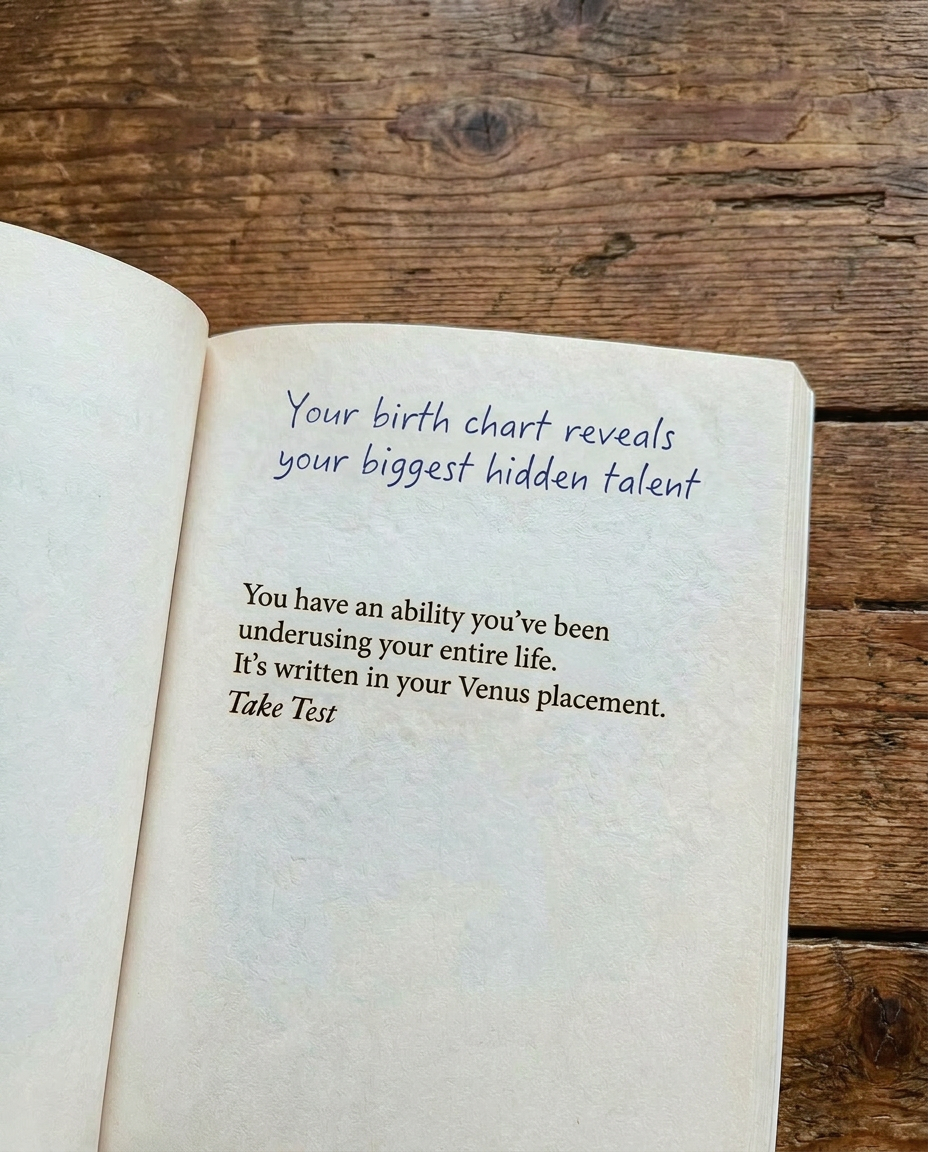 Your birth chart reveals
your biggest hidden talent
You have an ability you’ve been
underusing your entire life.
It’s written in your Venus placement.
Take Test